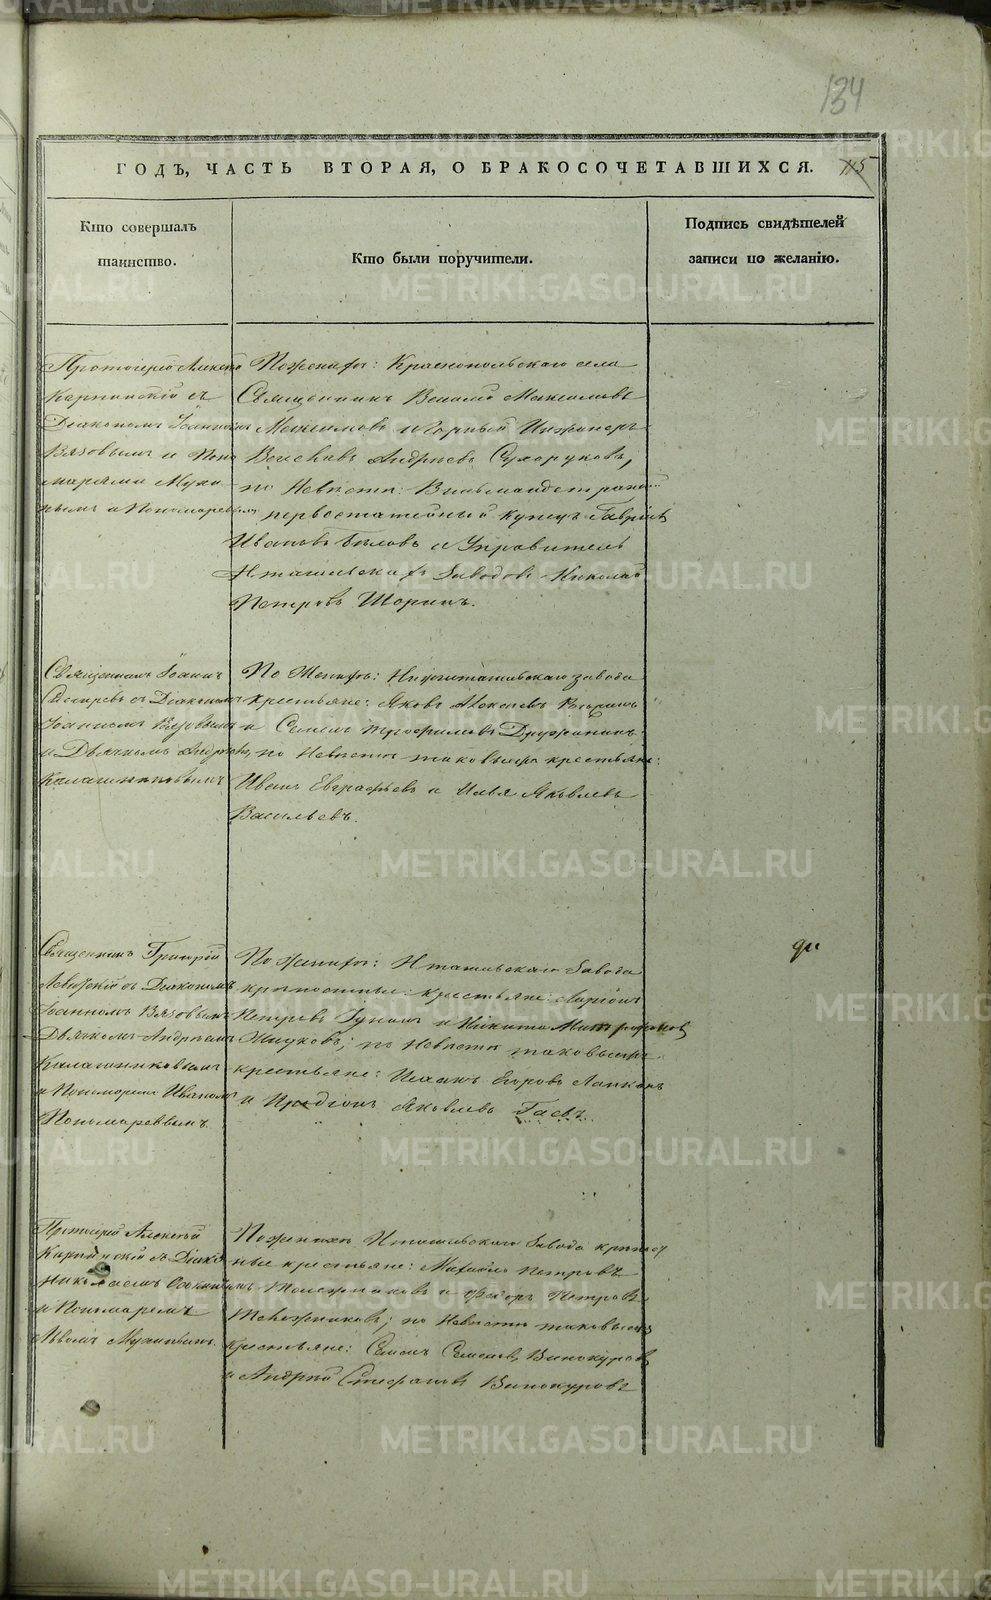 134
ГОДЪ, ЧАСТЬ ВТОРАЯ, О БРАКОСОЧЕТАВШИХСЯ. 115
Кто совершалъ
таинство.
Кто были поручители.
Подпись свидѣтелей
записи по желанію.
Протоіерей Алексѣй
Карпинскій съ
Діакономъ Іоанномъ
Вязовымъ и Поно
марями Муки
нымъ и Пономаревымъ
По женихѣ: Краснопольскаго села
Священникъ
Максимовъ и Горный Инженеръ
Андреевъ Сухоруковъ,
по Невѣстѣ:
первостатейный купецъ Гавріилъ
Ивановъ Бѣловъ и Управитель
Нтагильскихъ Заводовъ Николай
Петровъ Шоринъ.
Священникъ Іоаннъ
съ Діакономъ
Іоанномъ Вязовымъ
и Дьячкомъ Андреемъ
Калашниковымъ
По Женихѣ: Нижнетагильскаго завода
крестьяне: Яковъ Алексѣевъ
и Семенъ Трофимовъ Дружининъ
по Невѣстѣ таковыеже крестьяне:
Иванъ Евграфьевъ и Илья Яковлевъ
Васильевъ.
Священникъ Григорій
Левитскій съ Діакономъ
Іоанномъ Вязовымъ
Дьячкомъ Андреемъ
Калашниковымъ
и Пономаремъ Иваномъ
Пономаревымъ.
По женихѣ: Нтагильскаго Завода
крѣпостные крестьяне: Ларіонъ
Петровъ и Никита Митрофановъ
Жуковъ; по Невѣстѣ таковыеже
крестьяне: Егоровъ Лапкинъ
и Иродіонъ Яковлевъ Гаевъ.
Протоіерей Алексѣй
Карпинскій съ Діако
Николаемъ
и Пономаремъ
Львомъ Мукинымъ.
По женихѣ Нтагильскаго Завода крѣпост
ные крестьяне: Михайло Петровъ
и Ѳедоръ Петровъ
по Невѣстѣ таковыеже
крестьяне: Семенъ Семеновъ Винокуровъ
и Андрей Стефановъ Винокуровъ
METRIKI.GASO-URAL.RU